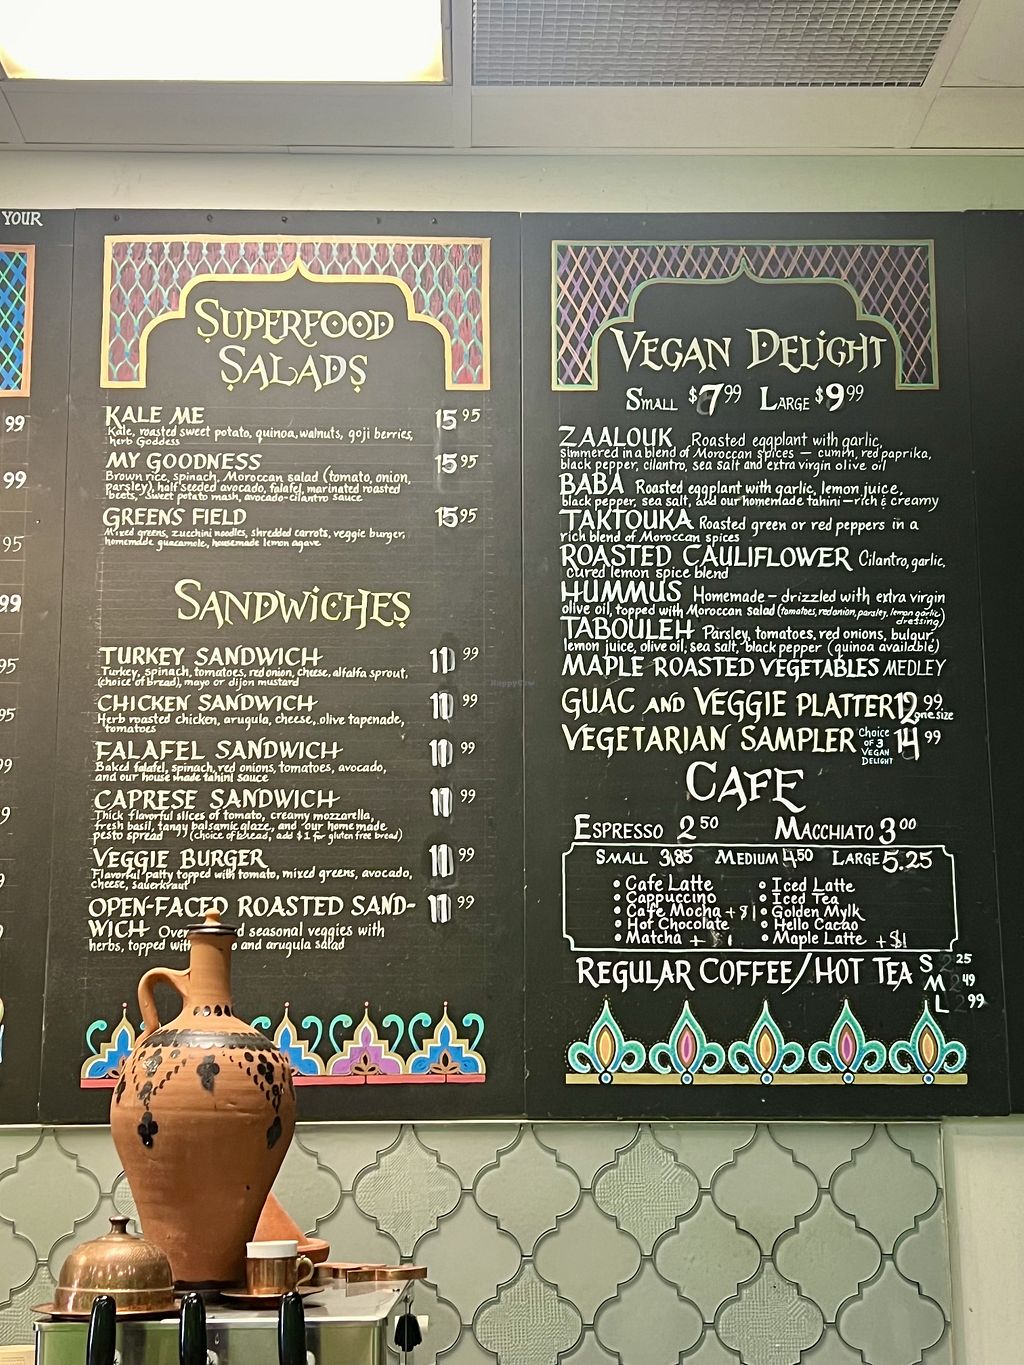 YOUR
99
99
95
99
95
95
99
9
9
SUPERFOOD
SALADS
KALE ME 15 95
Kale, roasted sweet potato, quinoa, walnuts, goji berries,
herb Goddess
MY GOODNESS 15 95
Brown rice, spinach, Moroccan salad (tomato, onion,
parsley), half seeded avocado, falafel, marinated roasted
beets, sweet potato mash, avocado-cilantro sauce
GREENS FIELD 15 95
Mixed greens, zucchini noodles, shredded carrots, veggie burger,
homemade guacamole, housemade lemon agave
SANDWICHES
TURKEY SANDWICH 11 99
Turkey, spinach, tomatoes, red onion, cheese, alfalfa sprout,
(choice of bread), mayo or dijon mustard
CHICKEN SANDWICH 11 99
Herb roasted chicken, arugula, cheese, olive tapenade,
tomatoes
FALAFEL SANDWICH 11 99
Baked falafel, spinach, red onions, tomatoes, avocado,
and our house made tahini sauce
CAPRESE SANDWICH 11 99
Thick flavorful slices of tomato, creamy mozzarella,
fresh basil, tangy balsamic glaze, and our home made
pesto spread (choice of bread, add $1 for gluten free bread)
VEGGIE BURGER 11 99
Flavorful patty topped with tomato, mixed greens, avocado,
cheese, sauerkraut
OPEN-FACED ROASTED SAND- 11 99
WICH Oven d seasonal veggies with
herbs, topped with o and arugula salad
VEGAN DELIGHT
SMALL $7 99 LARGE $9 99
ZAALOUK Roasted eggplant with garlic,
simmered in a blend of Moroccan spices — cumin, red paprika,
black pepper, cilantro, sea salt and extra virgin olive oil
BABA Roasted eggplant with garlic, lemon juice,
black pepper, sea salt, and our homemade tahini — rich & creamy
TAKTOUKA Roasted green or red peppers in a
rich blend of Moroccan spices
ROASTED CAULIFLOWER Cilantro, garlic,
cured lemon spice blend
HUMMUS Homemade – drizzled with extra virgin
olive oil, topped with Moroccan salad (tomatoes, red onion, parsley, lemon garlic
dressing)
TABOULEH Parsley, tomatoes, red onions, bulgur,
lemon juice, olive oil, sea salt, black pepper (quinoa available)
MAPLE ROASTED VEGETABLES MEDLEY
GUAC AND VEGGIE PLATTER 12 99
one size
VEGETARIAN SAMPLER Choice of 3 VEGAN DELIGHT 14 99
CAFE
ESPRESSO 2 50 MACCHIATO 3 00
SMALL 3.85 MEDIUM 4.50 LARGE 5.25
• Cafe Latte • Iced Latte
• Cappuccino • Iced Tea
• Cafe Mocha + $1 • Golden Mylk
• Hot Chocolate • Hello Cacao
• Matcha + $1 • Maple Latte + $1
REGULAR COFFEE/HOT TEA S 2 25
M 2 49
L 2 99
HappyCow